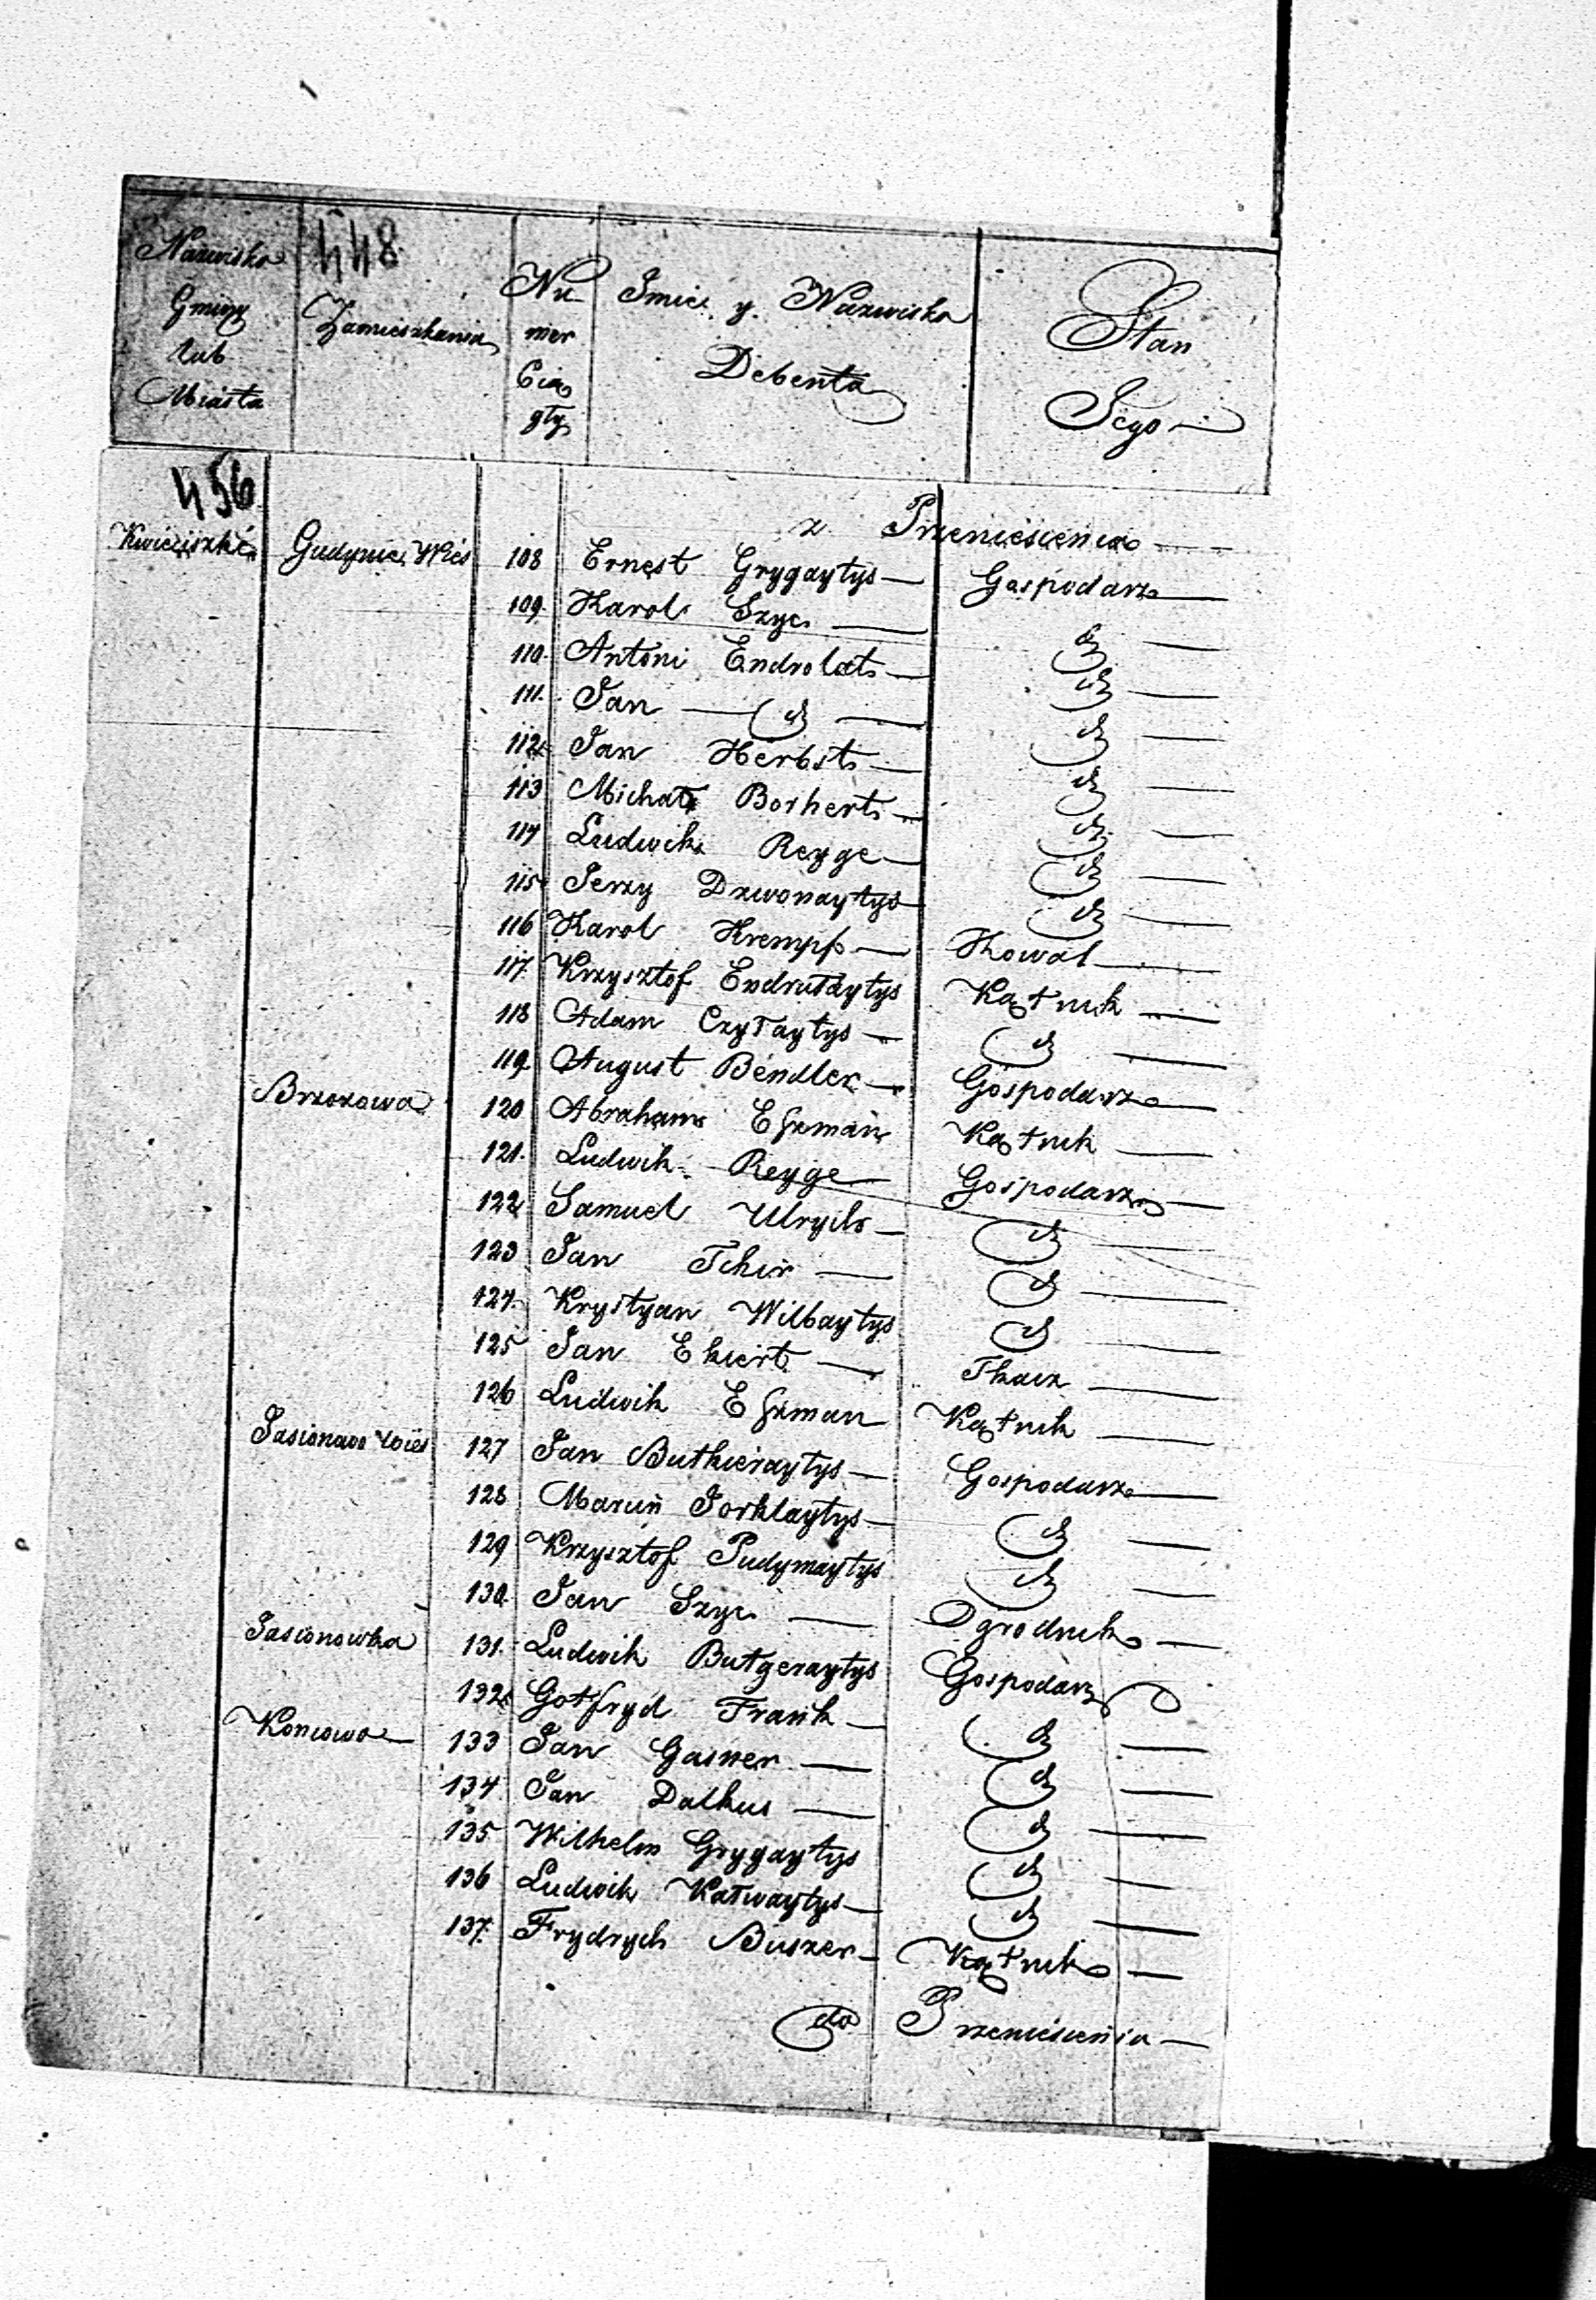 448
Nazwisko Gminy lub Miasta
Zamieszkania
Numer Ciągły
Imie y Nazwisko Debenta
Stan Jego
456
z Przeniesienia
Kwieciszki Gudynie Wieś 108 Ernest Grygaytys Gospodarz
109. Karol Szyc d
110. Antoni Endrolat d
111. Jan d d
112. Jan Herbst d
113 Michał Borhert d
114 Ludwik Reyge d
115 Jerzy Dzwonaytys d
116 Karol Krempf Kowal
117. Krzysztof Endrułaytys Kątnik
118 Adam Czyłaytys d
119. August Bendler Gospodarz
Brzozowa 120 Abraham Efzman Kątnik
121. Ludwik Reyge Gospodarz
122 Samuel Ulrych d
123 Jan Tchir d
124. Krystyan Wilbaytys d
125 Jan Ekiert Tkacz
126 Ludwik Efzman Kątnik
Jasionowo Wieś 127 Jan Butkieraytys Gospodarz
128 Marcin Jorklaytys d
129 Krzysztof Pudymaytys d
130. Jan Szyc Ogrodnik
Jasionowka 131. Ludwik Butgeraytys Gospodarz
132 Gotfryd Frank d
Koniowo 133 Jan Gasner d
134 Jan Dalkus d
135 Wilhelm Grygaytys d
136 Ludwik Katwaytys d
137. Frydrych Buszer Kątnik
do Przeniesienia